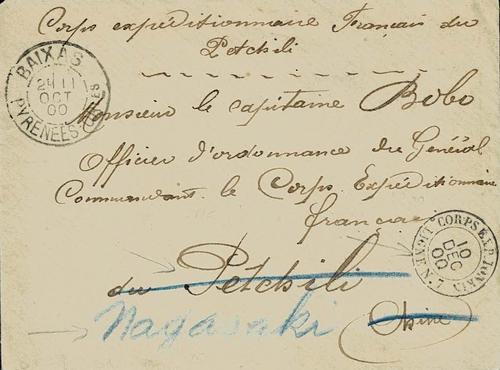 Corps expéditionnaire Français du
Petchili
BAIXAS
OCT
00
PYRENEES
Monsieur le capitaine Bobo
Officier d'ordonnance du Général
Commandant le Corps Expéditionnaire
français
CORPS EXP. TONKIN
10
DEC
00
du Petchili
Chine
Nagasaki